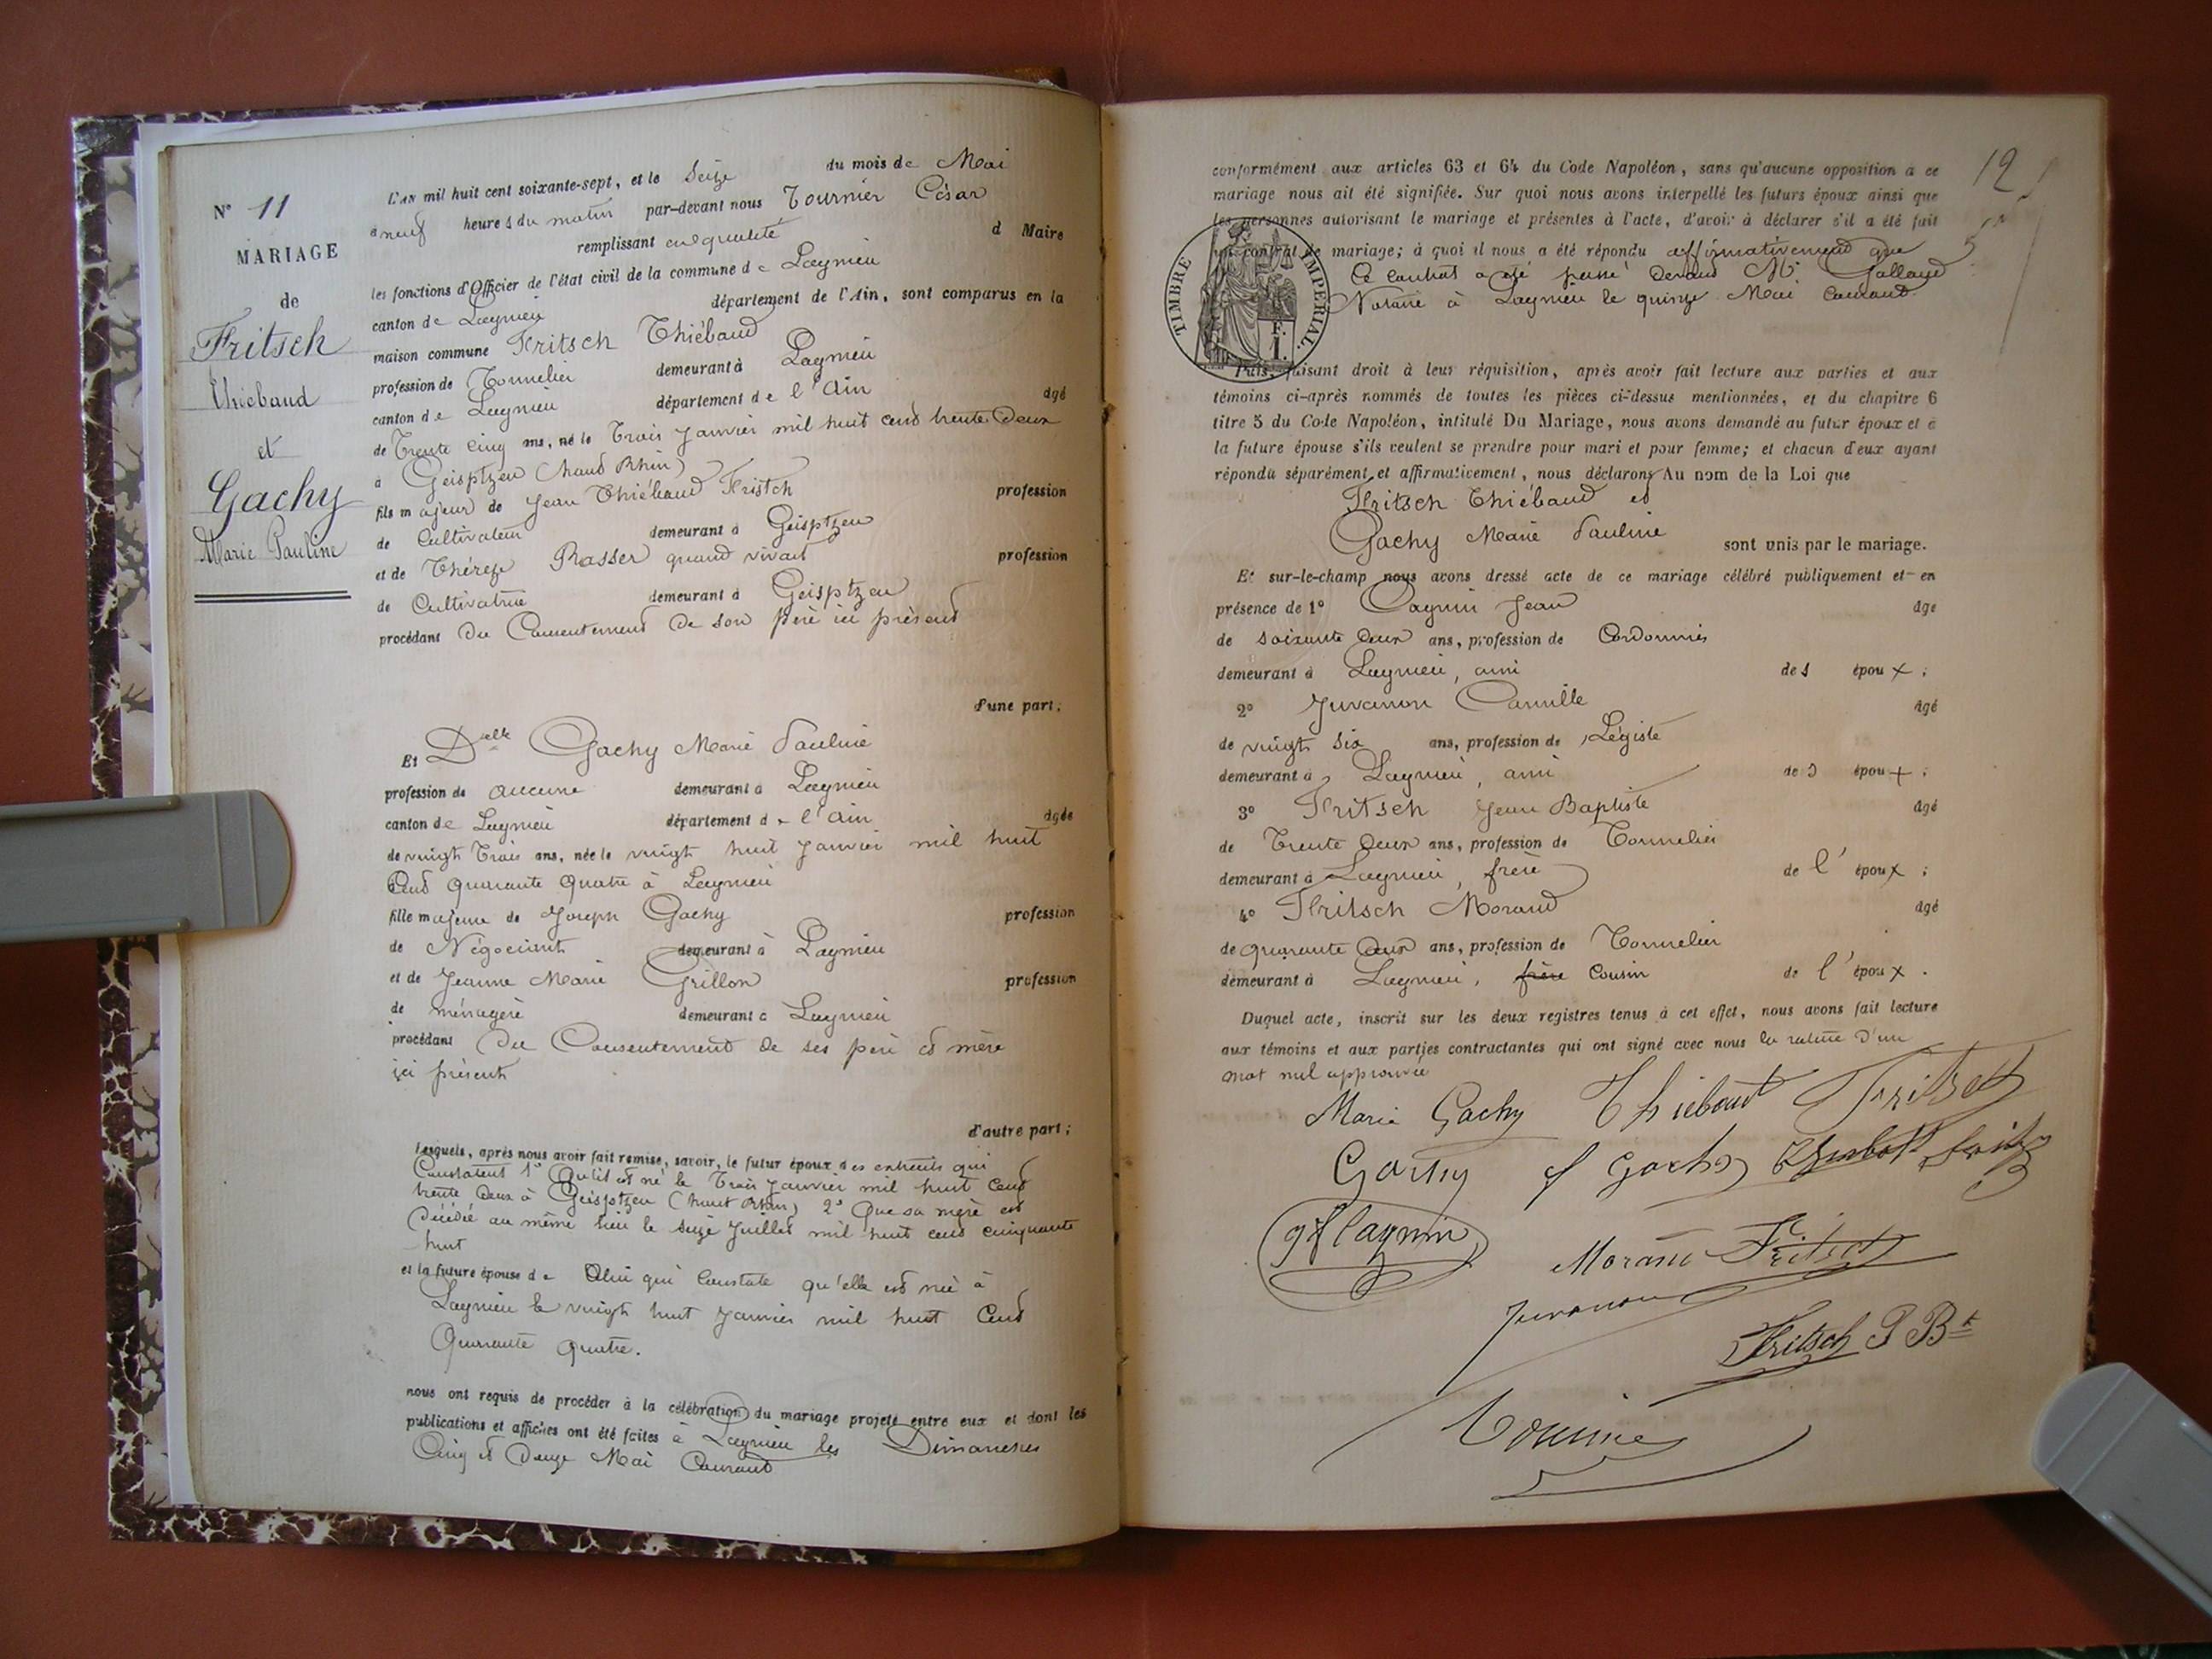 N° 11
MARIAGE
de
Fritsch
Thiébaud
et
Gachy
Marie Pauline
L'AN mil huit cent soixante-sept, et le Seize du mois de Mai
à neuf heures du matin par-devant nous Tournier César
remplissant en qualité d Maire
les fonctions d'Officier de l'état civil de la commune de Lagnieu
canton de Lagnieu département de l'Ain, sont comparus en la
maison commune Fritsch Thiébaud
profession de Tonnelier demeurant à Lagnieu
canton de Lagnieu département de l'Ain âgé
de Trente Cinq ans, né le Trois Janvier mil huit cent trente Deux
à Geisptzen (haut Rhin)
fils majeur de Jean Thiébaud Fristch profession
de Cultivateur demeurant à Geisptzen
et de Thérèse Rasser quand vivait profession
de Cultivatrice demeurant à Geisptzen
procédant du Consentement de son père ici présent
d'une part;
Et Delle Gachy Marie Pauline
profession de aucune demeurant à Lagnieu
canton de Lagnieu département de l'Ain âgée
de vingt Trois ans, née le vingt huit Janvier mil huit
Cent quarante quatre à Lagnieu
fille majeure de Joseph Gachy profession
de Négociant demeurant à Lagnieu
et de Jeanne Marie Grillon profession
de ménagère demeurant à Lagnieu
procédant du Consentement de ses père et mère
ici présents
d'autre part;
Lesquels, après nous avoir fait remise, savoir, le futur époux des extraits qui
Constatent 1° Qu'il est né le Trois Janvier mil huit Cent
trente Deux à Geisptzen (haut Rhin) 2° Que sa mère est
Décédée au même lieu le seize Juillet mil huit cent cinquante
huit
et la future épouse de Celui qui Constate qu'elle est née à
Lagnieu le vingt huit Janvier mil huit Cent
Quarante quatre.
nous ont requis de procéder à la célébration du mariage projeté entre eux et dont les
publications et affiches ont été faites à Lagnieu les Dimanches
Cinq et Douze Mai Courant
12
conformément aux articles 63 et 64 du Code Napoléon, sans qu'aucune opposition à ce
mariage nous ait été signifiée. Sur quoi nous avons interpellé les futurs époux ainsi que
les personnes autorisant le mariage et présentes à l'acte, d'avoir à déclarer s'il a été fait
un contrat de mariage; à quoi il nous a été répondu affirmativement que
Ce Contrat a été passé Devant Me Galland
Notaire à Lagnieu le quinze Mai Courant.
TIMBRE IMPÉRIAL.
F. I.
Puis, faisant droit à leur réquisition, après avoir fait lecture aux parties et aux
témoins ci-après nommés de toutes les pièces ci-dessus mentionnées, et du chapitre 6
titre 5 du Code Napoléon, intitulé Du Mariage, nous avons demandé au futur époux et à
la future épouse s'ils veulent se prendre pour mari et pour femme; et chacun d'eux ayant
répondu séparément et affirmativement, nous déclarons Au nom de la Loi que
Fritsch Thiébaud et
Gachy Marie Pauline sont unis par le mariage.
Et sur-le-champ nous avons dressé acte de ce mariage célébré publiquement et en
présence de 1° Pagnin Jean âgé
de soixante Deux ans, profession de Cordonnier
demeurant à Lagnieu, ami des époux;
2° Juvanon Camille âgé
de vingt six ans, profession de Légiste
demeurant à Lagnieu, ami des époux;
3° Fritsch Jean Baptiste âgé
de Trente Deux ans, profession de Tonnelier
demeurant à Lagnieu, frère de l'époux;
4° Fritsch Morand âgé
de quarante Deux ans, profession de Tonnelier
demeurant à Lagnieu, frère Cousin de l'époux.
Duquel acte, inscrit sur les deux registres tenus à cet effet, nous avons fait lecture
aux témoins et aux parties contractantes qui ont signé avec nous la rature d'un
mot nul approuvée
Marie Gachy Thiebaut Fritsch
Gachy f Gachy
Morand Fritsch
Juvanon
Fritsch J Bte
Tournier